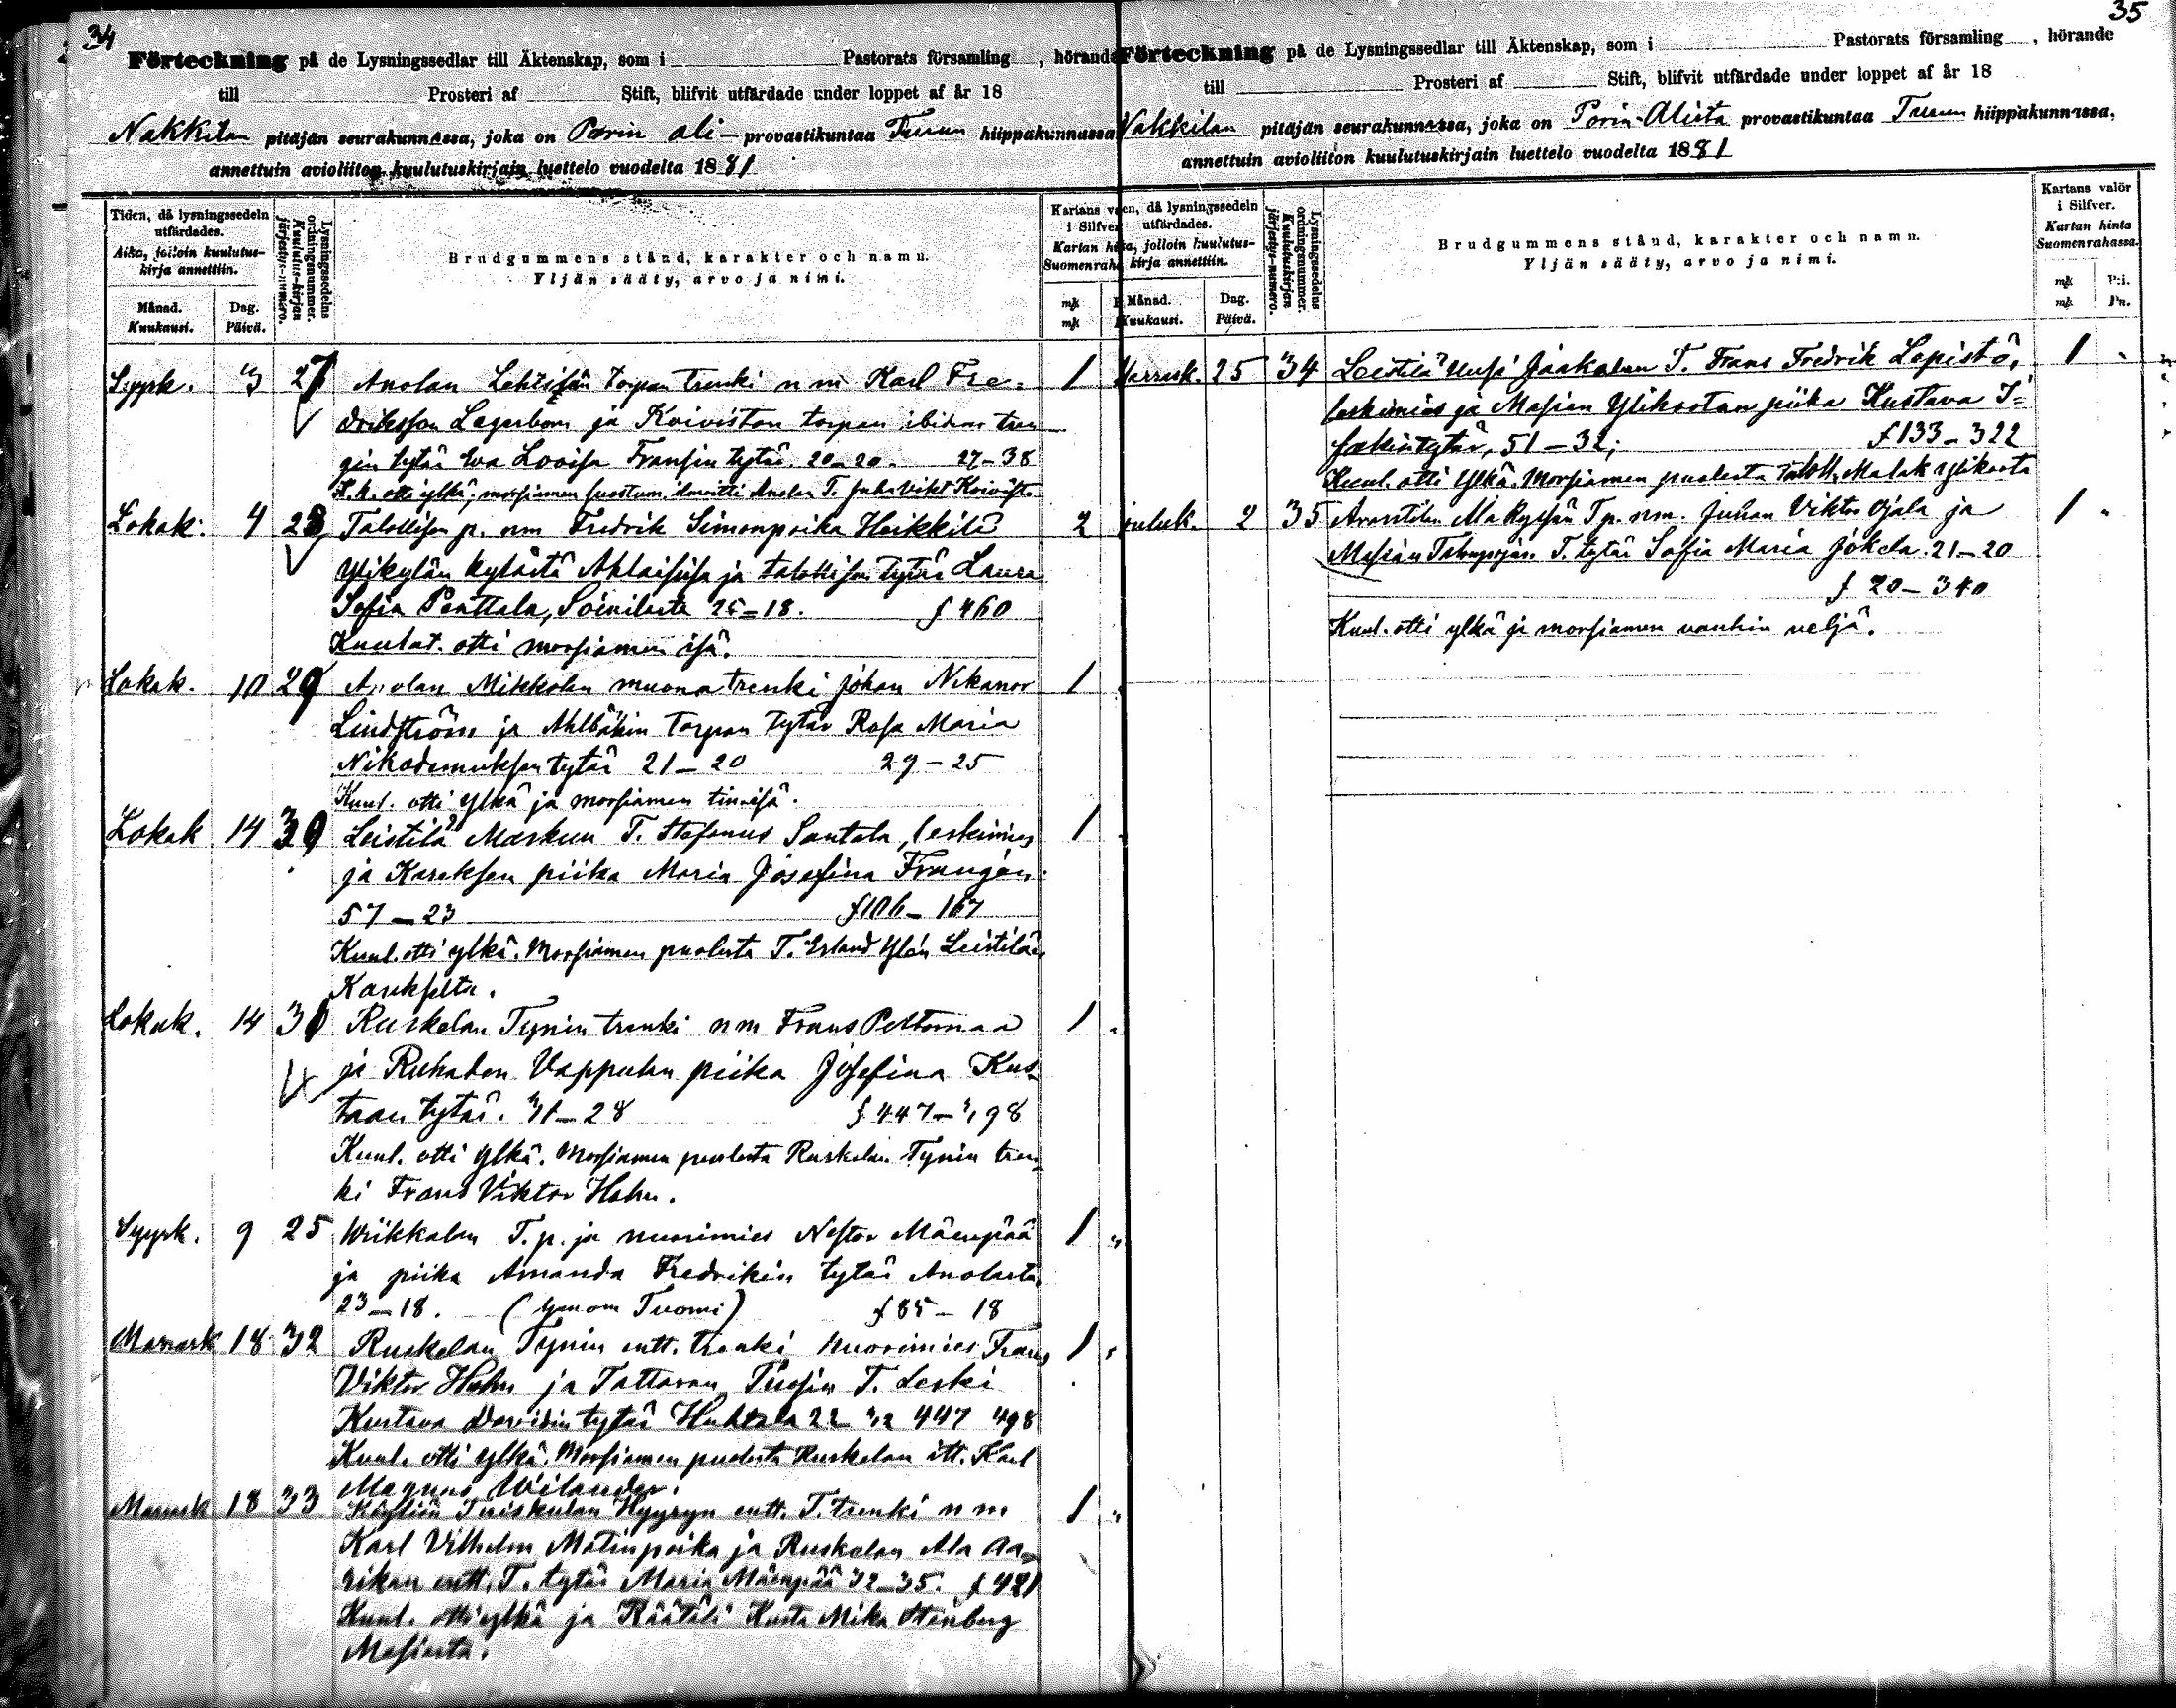 34
Förteckning på de Lysningssedlar till Äktenskap, som i Pastorats församling, hörande
till Prosteri af Stift, blifvit utfärdade under loppet af år 18
Nakkilan pitäjän seurakunnassa, joka on Porin ali- provastikuntaa Turun hiippakunnassa
annettuin avioliiton kuulutuskirjain luettelo vuodelta 1881
Tiden, då lysningssedeln utfärdades.
Aika, jolloin kuulutus-kirja annettiin.
Månad. Kuukausi.
Dag. Päivä.
Lysningssedelns ordningsnummer.
Kuulutus-kirjan järjestys-numero.
Brudgummens stånd, karakter och namn.
Yljän sääty, arvo ja nimi.
Kartans v
i Silfver
Kartan hi
Suomenraha
mk
mk
Syysk. 3 27 Anolan Lehtisän torpan trenki n m Karl Fre- 1
driksson Lagerbom ja Koiviston torpan ibidem tren
gin tytär Eva Lovisa Fransin tytär 20-20. 27-38
K. k. otti ylkä; morsiamen suostum. ilmoitti Anolan T. Juha Vikt Koivisto
Lokak. 4 28 Talollisen p. nm Fredrik Simonpoika Heikkilä 2
Ylikylän kylästä Ahlaisissa ja talollisen tytär Laura
Sofia Penttala, Soinilasta 25-18. f 460
Kuulut. otti morsiamen isä.
Lokak. 10 29 Anolan Mikkolan muona trenki Johan Nikanor 1
Lindström ja Ahlbäkin torpan tytär Rosa Maria
Nikodemuksen tytär 21-20 29-25
Kuul. otti ylkä ja morsiamen
Lokak 14 30 Leistilä Maskun T. Stefanus Santala, leskimies 1
ja Kareksen piika Maria Josefina Frangén
57-23 f 106-167
Kuul. otti ylkä. Morsiamen puolesta T. Erland Ylén Leistilän
Karekselta.
Lokak. 14 31 Ruskelan Tynin trenki n m Frans Peltomaa 1 "
ja Ruhaden Vappulan piika Josefina Kus-
taan tytär. 31-28 f 447-398
Kuul. otti ylkä. Morsiamen puolesta Ruskelan Tynin tren-
ki Frans Viktor Hahn.
Syysk. 9 25 Wiikkalan T. p. ja nuorimies Nestor Mäenpää 1 "
ja piika Amanda Fredrikin tytär Anolasta
23-18. (genom Tuomi) f 85-18
Marrask 18 32 Ruskelan Tynin entt. trenki nuorimies Frans 1 "
Viktor Hahn ja Tattaran T. Leski
Kustava Davidin tytär Huhtala 22-32 447 498
Kuul. otti ylkä. Morsiamen puolesta Ruskelan itt. Karl
Magnus Wilander.
Marrask 18 33 Köyliön Tuiskulan Hyyryn entt. T. trenki n m 1 "
Karl Vilhelm Matinpoika ja Ruskelan Ala Aa-
rikan entt. T. tytär Maria Mäenpää 32-35. f 421
Kuul. otti ylkä ja Räätäli Kusta Mika Stenberg
Masiasta.
35
Förteckning på de Lysningssedlar till Äktenskap, som i Pastorats församling, hörande
till Prosteri af Stift, blifvit utfärdade under loppet af år 18
Nakkilan pitäjän seurakunnassa, joka on Porin Alista provastikuntaa Turun hiippakunnassa,
annettuin avioliiton kuulutuskirjain luettelo vuodelta 1881
en, då lysningssedeln utfärdades.
a, jolloin kuulutus-kirja annettiin.
Månad. Kuukausi.
Dag. Päivä.
Lysningssedelns ordningsnummer.
Kuulutuskirjan järjestys-numero.
Brudgummens stånd, karakter och namn.
Yljän sääty, arvo ja nimi.
Kartans valör i Silfver.
Kartan hinta Suomenrahassa.
mk P:i.
mk Pn.
Marrask. 25 34 Leistilä Uusi Jaakolan T. Frans Fredrik Lepistö, 1 "
leskimies ja Masian Ylikootan piika Kustava I=
sakin tytär, 51-32; f 133-322
Kuul. otti ylkä. Morsiamen puolesta talott. Malak Ylikoota
Jouluk. 2 35 Arantilan Mäkysän T p. nm. Juhan Viktor Ojala ja 1 "
Masian T. tytär Sofia Maria Jokela 21-20
f 20-340
Kuul. otti ylkä ja morsiamen vanhin veljä.